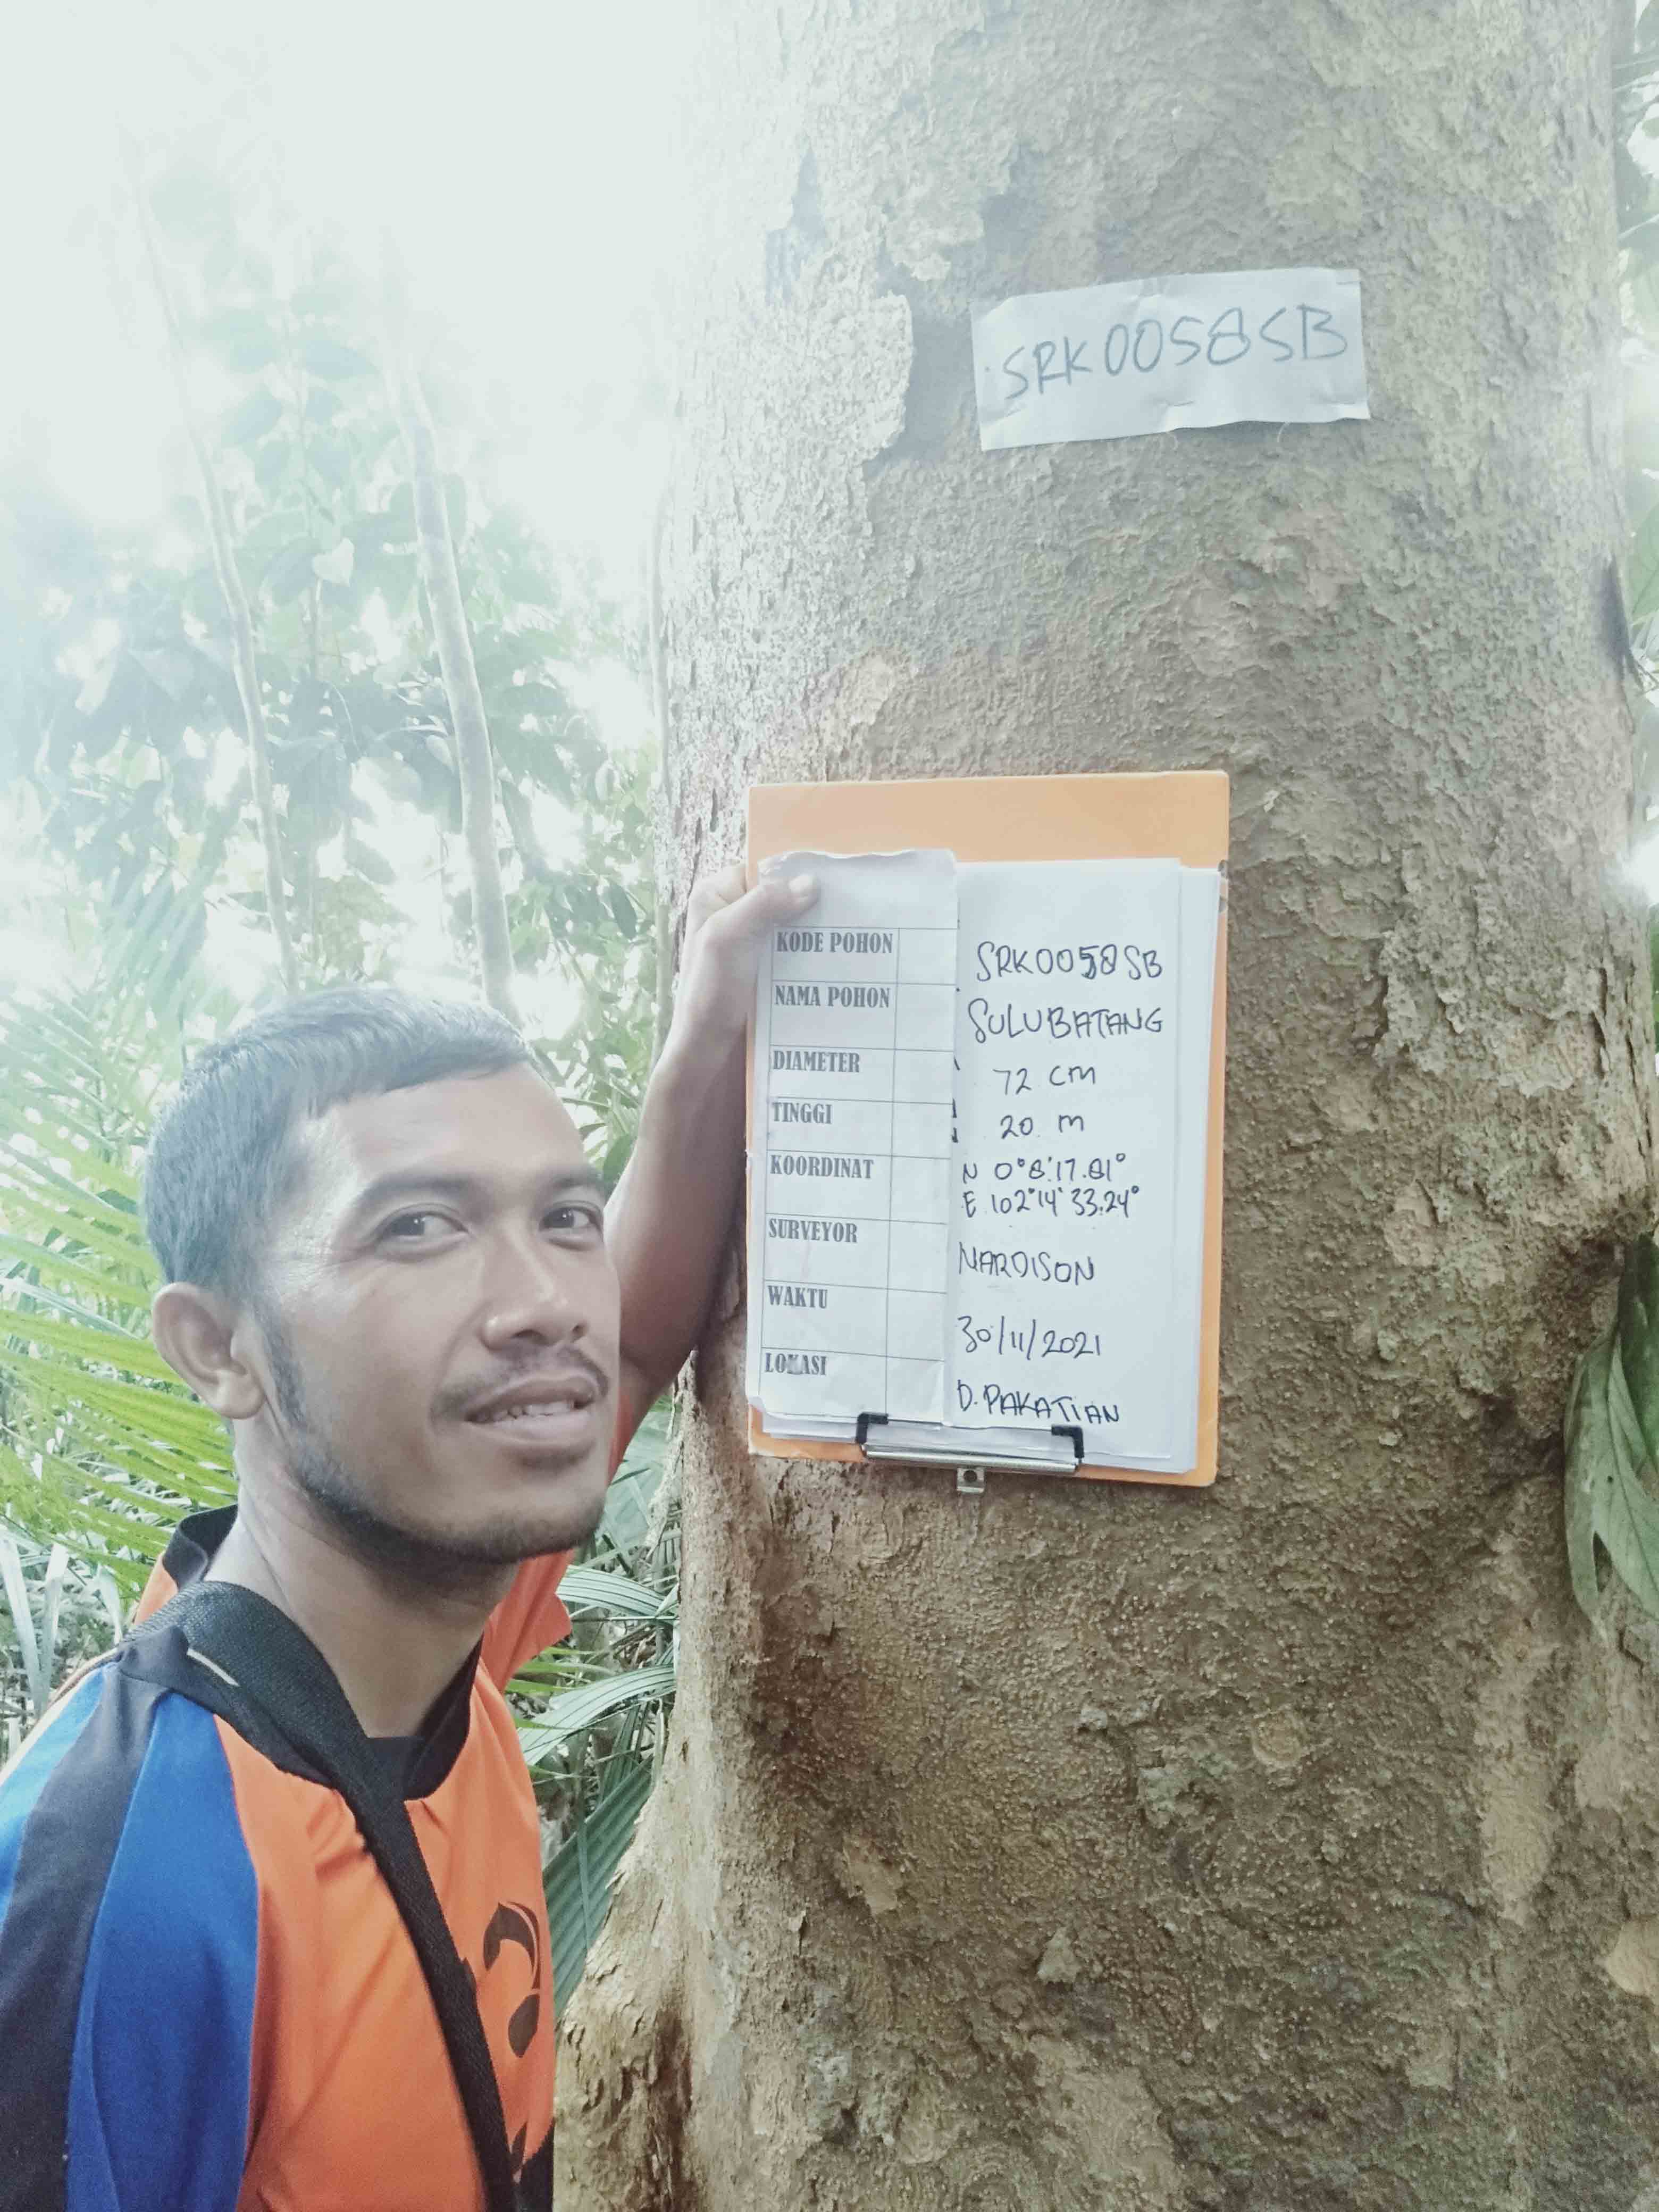 SRK0058SB
KODE POHON SRK0058SB
NAMA POHON SULUBATANG
DIAMETER 72 cm
TINGGI 20 m
KOORDINAT N 0°8'17.81°
E 102°14'33.24°
SURVEYOR NARDISON
WAKTU 30/11/2021
LOKASI D. PAKATIAN